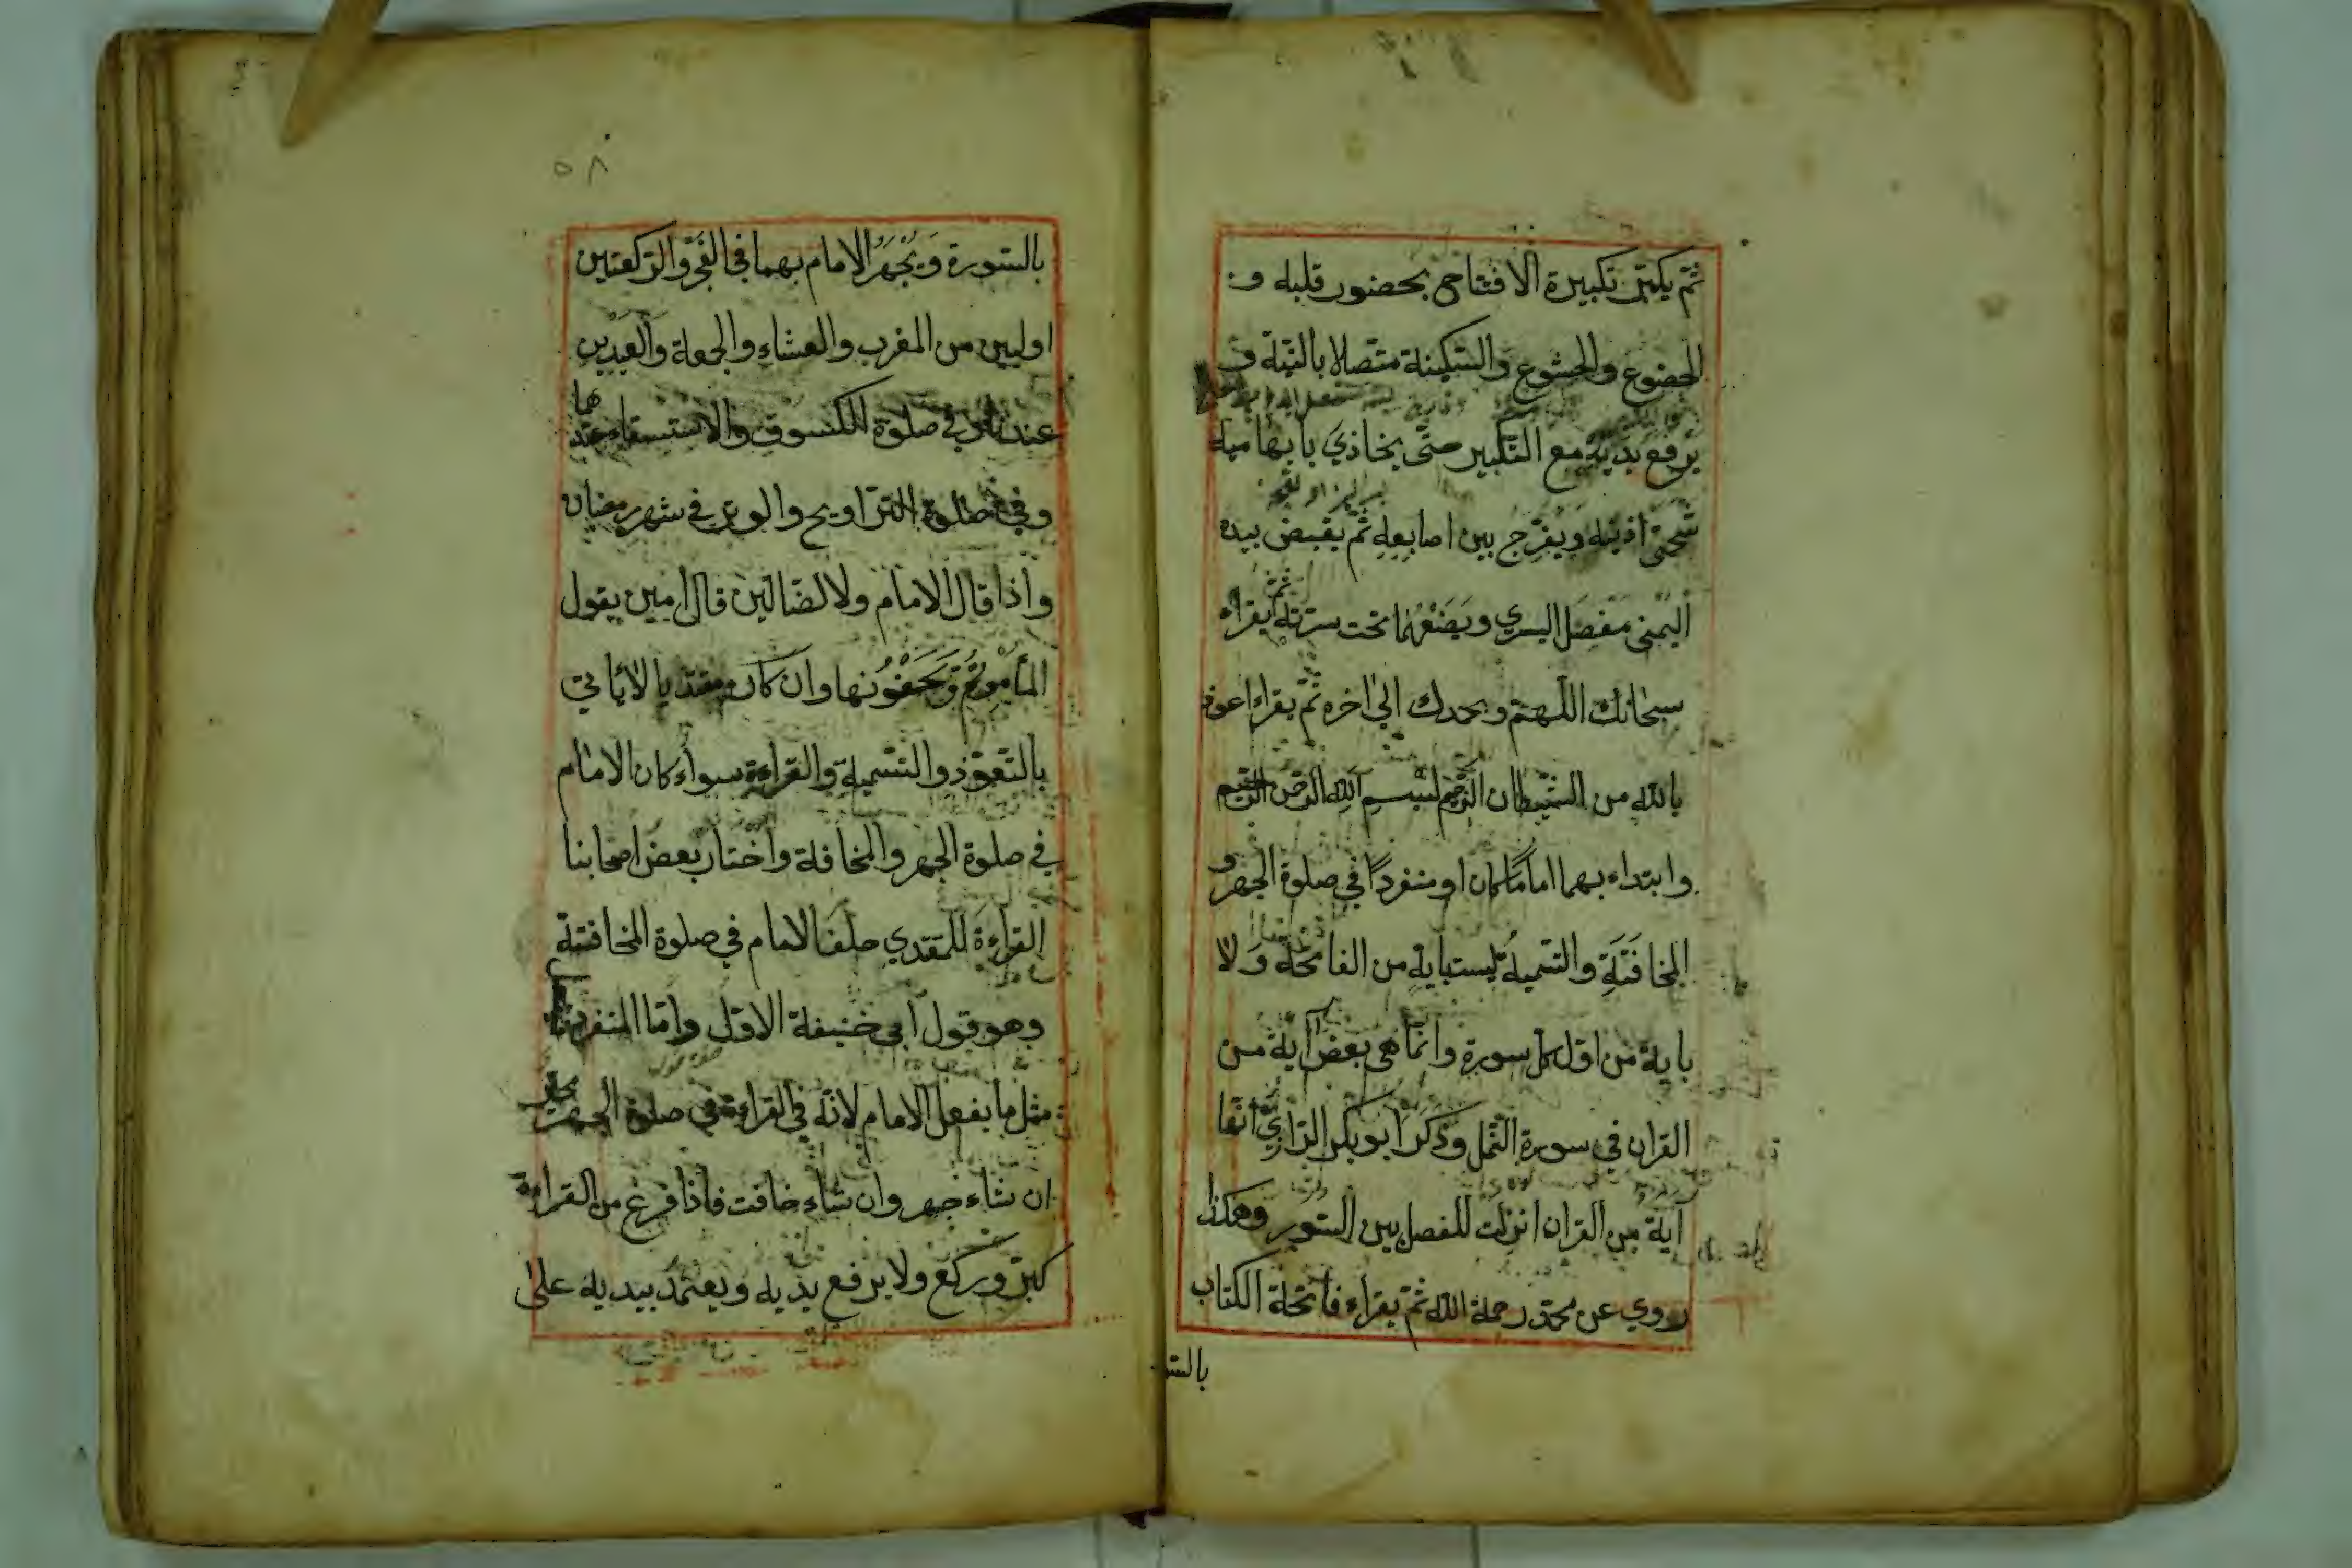 ثم يكبر تكبيرة الافتتاح بحضور قلبه و
الخضوع والخشوع والسكينة متصلا بالنية و
يرفع يديه مع التكبير حتى يحاذي بابهاميه
شحمتي اذنيه ويفرج بين اصابعه ثم يقبض بيده
اليمنى مفصل اليسرى ويضعهما تحت سرته ثم يقراء
سبحانك اللهم وبحمدك الى اخره ثم يقراء اعوذ
بالله من الشيطان الرجيم بسم الله الرحمن الرحيم
وابتداء بهما اماما كان او منفردا في صلوة الجهر و
المخافتة والتسمية ليست باية من الفاتحة ولا
باية من اول كل سورة وانما هي بعض آية من
القران في سورة النمل وذكر ابو بكر الرازي انها
آية من القران انزلت للفصل بين السور وهكذا
روي عن محمد رحمة الله ثم يقراء فاتحة الكتاب
بالسو
٥٨
بالسورة ويجهر الامام بهما في الفجر والركعتين
اوليين من المغرب والعشاء والجمعة والعيدين
في صلوة الكسوف والاستسقاء عندهما
وفي صلوة التراويح والوتر في شهر رمضان
واذا قال الامام ولا الضالين قال امين يقول
المأموم ويخفونها وان كان مقتديا لا يأتي
بالتعوذ والتسمية والقراءة سواء كان الامام
في صلوة الجهر والمخافتة واختار بعض اصحابنا
القراءة للمقتدي خلف الامام في صلوة المخافتة
وهو قول ابي حنيفة الاول واما المنفرد
مثل ما يفعل الامام لانه في القراءة في صلوة الجهر
ان شاء جهر وان شاء خافت فاذا فرغ من القراءة
كبر وركع ولا يرفع يديه ويعتمد بيديه على